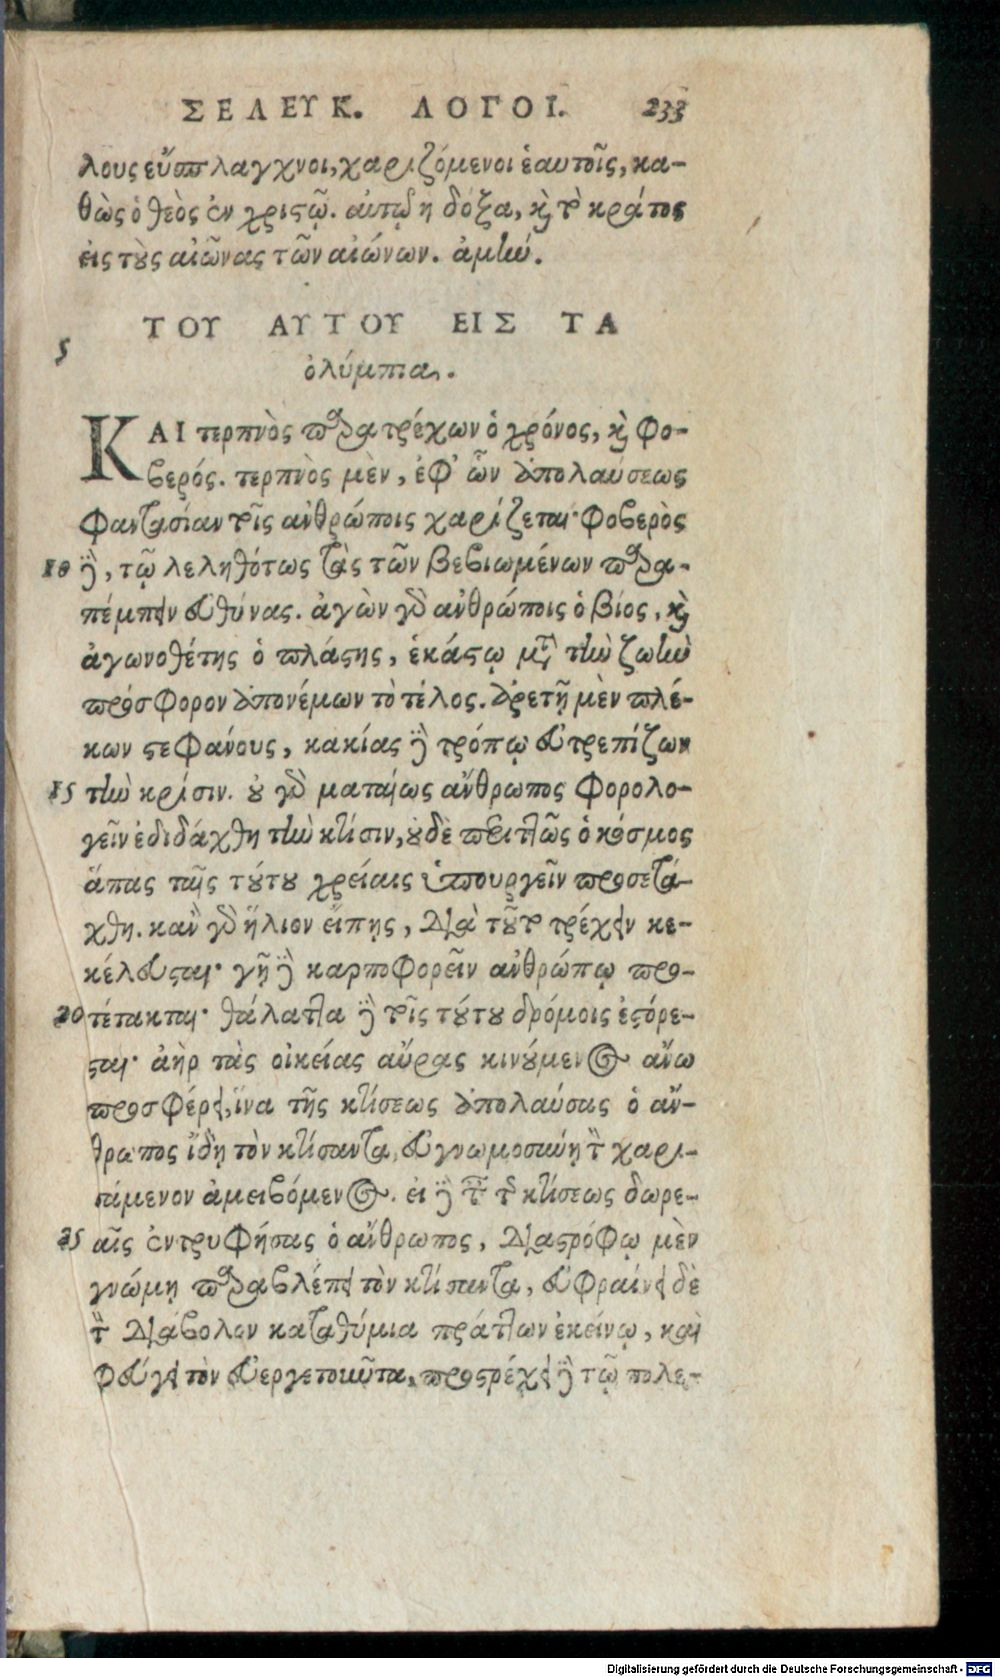 ΣΕΛΕΥΚ. ΛΟΓΟΙ. 233
λους εὔσπλαγχνοι, χαριζόμενοι ἑαυτοῖς, κα-
θὼς ὁ θεὸς ἐν χριστῷ. αὐτῷ ἡ δόξα, καὶ τὸ κράτος
εἰς τοὺς αἰῶνας τῶν αἰώνων. ἀμήν.
ΤΟΥ ΑΥΤΟΥ ΕΙΣ ΤΑ
5
ὀλύμπια.
ΚΑΙ τερπνὸς παρατρέχων ὁ χρόνος, καὶ φο-
βερός. τερπνὸς μὲν, ἐφ' ὧν ἀπολαύσεως
φαντασίαν τοῖς ἀνθρώποις χαρίζεται· φοβερὸς
10 δὲ, τῷ λεληθότως τὰς τῶν βεβιωμένων παρα-
πέμπειν εὐθύνας. ἀγὼν γὰρ ἀνθρώποις ὁ βίος, καὶ
ἀγωνοθέτης ὁ πλάστης, ἑκάστῳ μετὰ τὴν ζωὴν
πρόσφορον ἀπονέμων τὸ τέλος. ἀρετῇ μὲν πλέ-
κων στεφάνους, κακίας δὲ τρόπῳ εὐτρεπίζων
15 τὴν κρίσιν. οὐ γὰρ ματαίως ἄνθρωπος φορολο-
γεῖν ἐδιδάχθη τὴν κτίσιν, οὐδὲ περιττῶς ὁ κόσμος
ἅπας ταῖς τούτου χρείαις ὑπουργεῖν προσετά-
χθη. κἂν γὰρ ἥλιον εἴπῃς, διὰ τοῦτο τρέχειν κε-
κέλευσται· γῆ δὲ καρποφορεῖν ἀνθρώπῳ προ-
20 τέτακται· θάλαττα δὲ τοῖς τούτου δρόμοις ἐστόρε-
σται· ἀὴρ τὰς οἰκείας αὔρας κινούμενος ἄνω
προσφέρει, ἵνα τῆς κτίσεως ἀπολαύσας ὁ ἄν-
θρωπος ἴδῃ τὸν κτίσαντα, εὐγνωμοσύνῃ τὸν χαρι-
σάμενον ἀμειβόμενος. εἰ δὲ τῆς κτίσεως δωρε-
25 αῖς ἐντρυφήσας ὁ ἄνθρωπος, διαστρόφῳ μὲν
γνώμῃ παραβλέπει τὸν κτίσαντα, εὐφραίνει δὲ
τὸν διάβολον καταθύμια πράττων ἐκείνῳ, καὶ
φεύγει τὸν εὐεργετοῦντα, προστρέχει δὲ τῷ πολε-
Digitalisierung gefördert durch die Deutsche Forschungsgemeinschaft - DFG